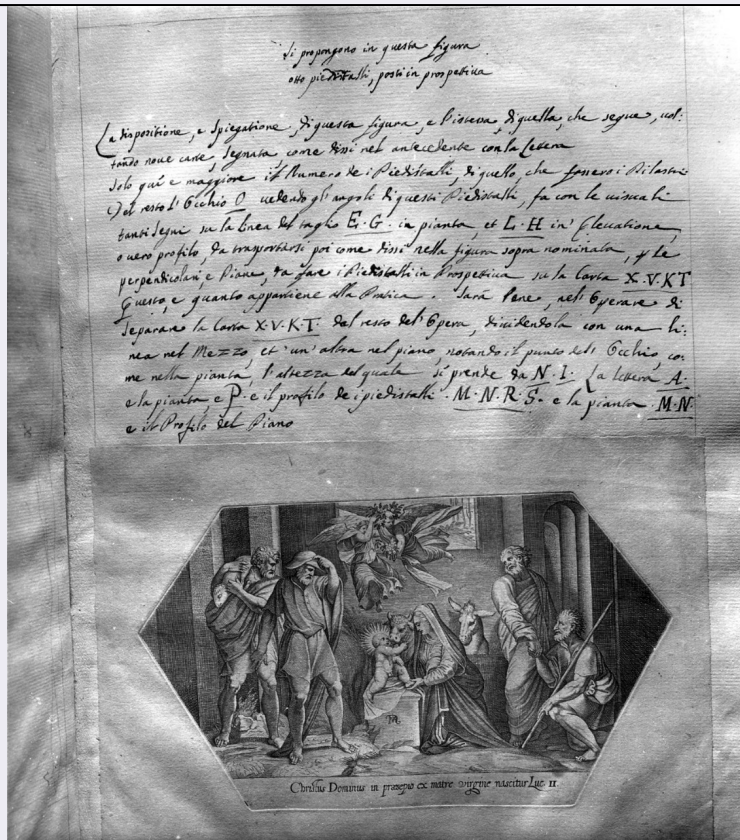 Si propongono in questa figura
otto piedistalli, posti in prospettiva
La dispositione, e Spiegatione, di questa figura, e l'istessa, di quella, che segue, vol:
tando nove carte, Segnata come dissi nel antecedente con la Lettera
Solo quí e maggiore il Numero de i Piedistalli di quello, che fossero i Pilastri
del resto l'Occhio O vedendo gl'angoli di questi Piedistalli, fa con le visuali
tanti Segni su la linea del taglio E. G. in pianta, et L. H in Elevatione,
o vero profilo, da trasportarsi poi come dissi nella figura sopra nominata, Le
perpendicolari, e Piane, da fare i Piedistalli in Prospettiva su la Carta X.V.K T
Questo, e quanto appartiene alla Pratica. Sará bene, nel'Operare di
Separare la Carta X.V.K.T. dal resto del'Opera, dividendola con una li:
nea nel Mezzo, et un'altra nel piano, notando il punto del'Occhio, co:
me nella pianta, l'altezza del quale si prende da N. I. La lettera A.
e la pianta e P. e il profilo de i piedistalli .M.N.R.S. e la pianta .M.N.
e il Profilo del Piano
Christus Dominus in præsepio ex matre virgine nascitur Luc. II